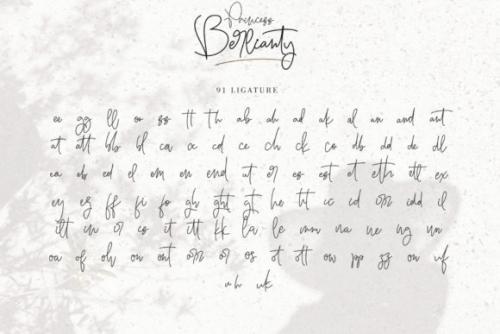 Princess
Berlianty
91 LIGATURE
ee gg ll oo ss tt th ab ah ad ak al an and ant
at att bb bl ca cc cd ce ch ck co db dd de dl
ea eb ed el em en end et er es est et eth ett ex
ey eg ff fi fo gh ght gt he ht ic id idd il
in ir is it itt kk la le mm na ne ng nn
oa of oh on ont or os ot ott ow pp zz un uf
uh uk